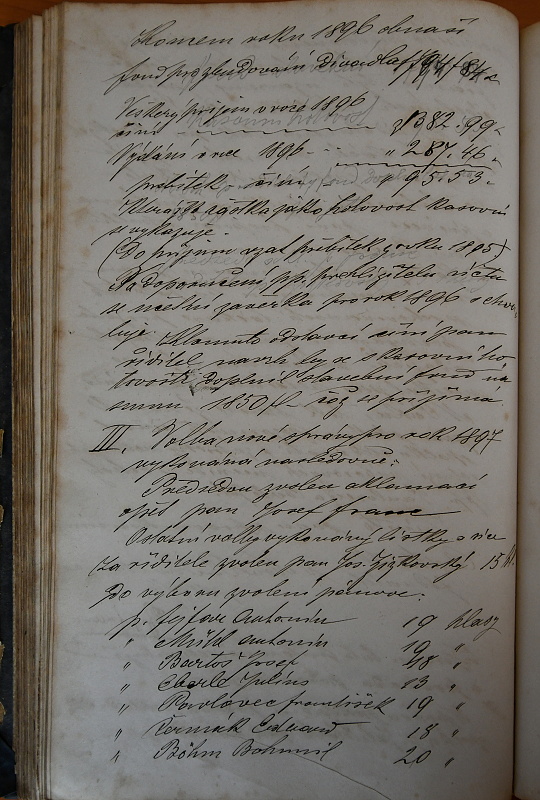 Koncem roku 1896 obnáší
fond pro zbudování Divadla
Veškerý příjem v roce 1896
činí zl 382.99
Vydání v roce 1896 " 287.46
přebytek činí " 95.53
Kterážto částka jako hotovost kasovní
se vykazuje.
(Do příjmu vzat přebytek z roku 1895)
Na doporučení pp. přehlížitelů účtů
se účetní závěrka pro rok 1896 schva-
luje. K tomuto odstavci činí pan
ředitel návrh by se z kasovního
doplnil stavební fond na
sumu 1850 zl což se přijímá.
III. Volba nové správy pro rok 1897
vykonána následovně:
Předsedou zvolen aklamací
opět pan Josef Franc
Ostatní volby vykonány lístky a sice
za ředitele zvolen pan Jos. Žižkovský 15 hl.
Do výboru zvoleni pánové:
p. Fejfar Antonín 19 hlasy
" Mühl Antonín 19 "
" Bartoš Josef 18 "
" Eberle Julius 13 "
" Pavlovec František 19 "
" Čermák Eduard 18 "
" Böhm Bohumil 20 "